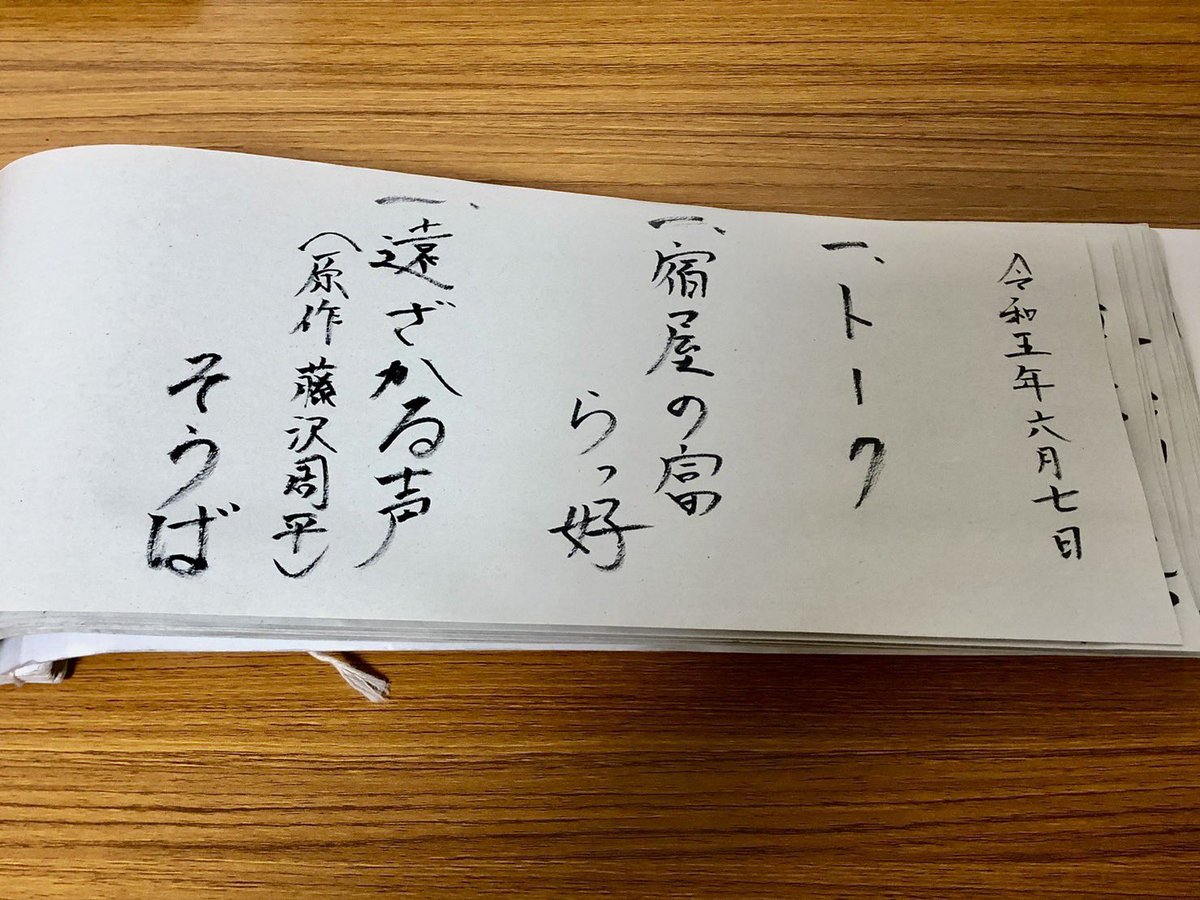 令和五年六月七日
一、トーク
一、宿屋の富
らっ好
一、遠ざかる声
(原作 藤沢周平)
そうば